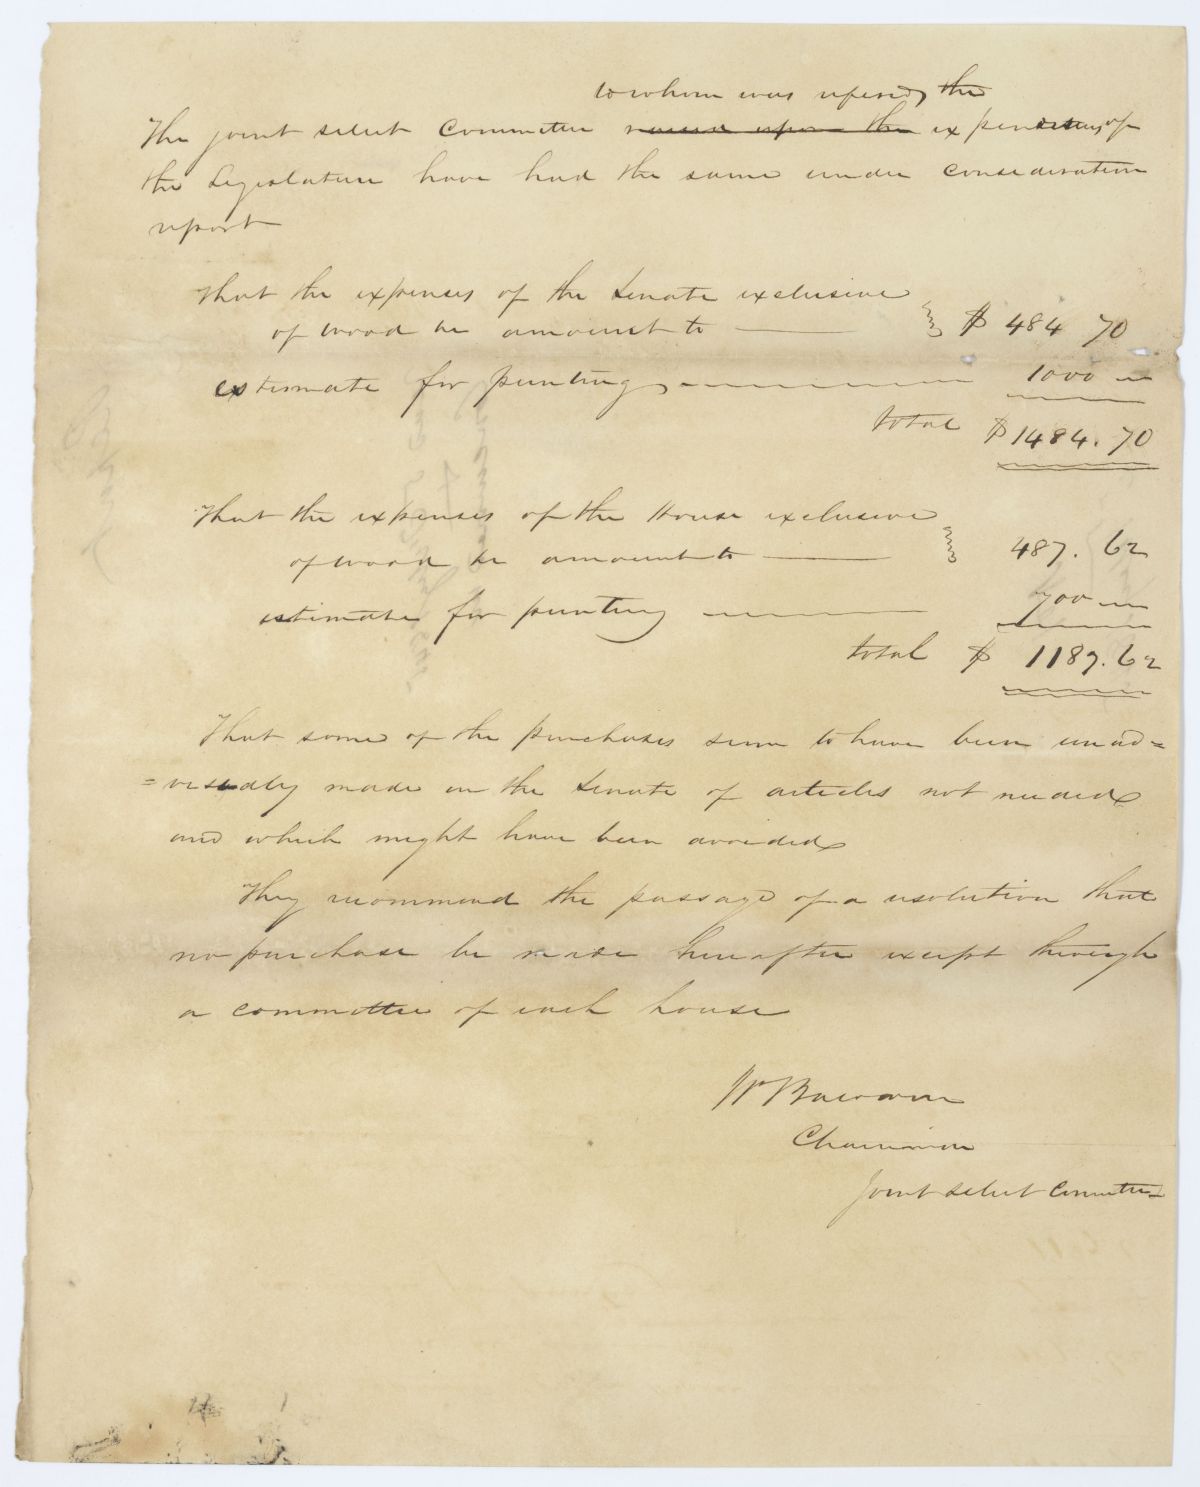 to whom was refered the
The joint select Committee raised upon the expenditures of
the Legislature have had the same under consideration
report
That the expenses of the Senate exclusive
of wood he amount to $ 484 70
estimate for printing, 1000
total $1484.70
That the expenses of the House exclusive
of wood he amount to 487.62
estimate for printing 700
total $ 1187.62
That some of the purchases seem to have been unad=
=visedly made in the Senate of articles not needed
and which might have been avoided
They recommend the passage of a resolution that
no purchase be made hereafter except through
a committee of each house
Chairman
Joint select Committee